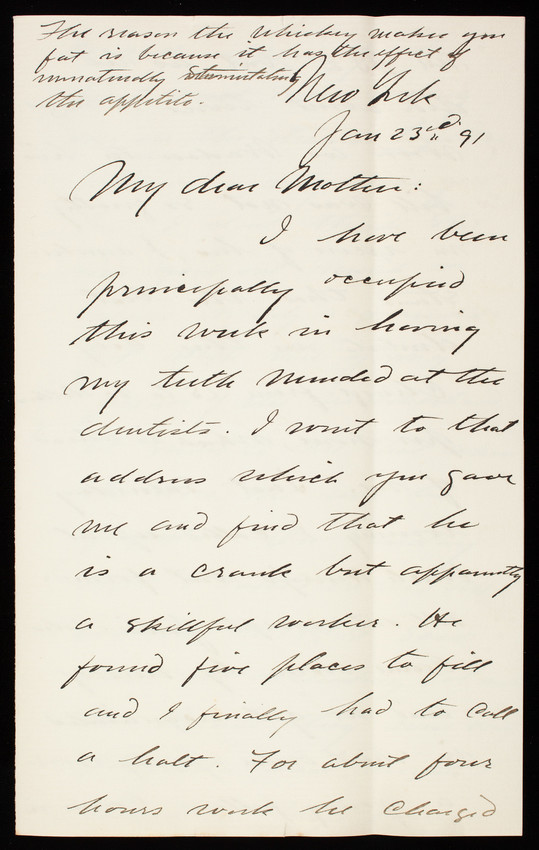 The reason the whiskey makes you
fat is because it has the effect of
unnaturally stimulating
the appetite.
New York
Jan 23rd 91
My dear Mother:
I have been
principally occupied
this week in having
my teeth mended at the
dentists. I went to that
address which you gave
me and find that he
is a crank but apparently
a skillful worker. He
found five places to fill
and I finally had to call
a halt. For about four
hours work he charged